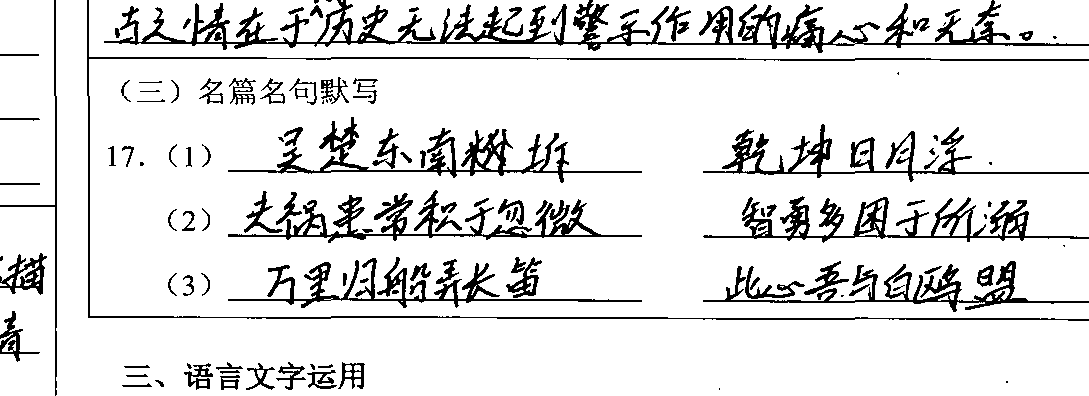 古之情在于历史无法起到警示作用的痛心和无奈。
（三）名篇名句默写
17.（1） 吴楚东南坼 乾坤日月浮.
（2） 夫祸患常积于忽微 智勇多困于所溺
（3） 万里归船弄长笛 此心吾与白鸥盟
描
三、语言文字运用